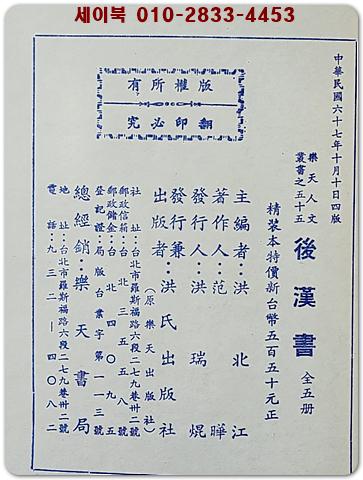 세이북 010-2833-4453
中華民國六十七年十月十日四版
樂天人文
叢書之五十五
後漢書 全五册
精裝本特價新台幣五百五十元正
版權所有
翻印必究
主編者：洪北江
著作人：范曄
發行人：洪瑞焜
發行兼
出版者：洪氏出版社
（原樂天出版社）
社址：台北市羅斯福路六段二七九巷卅二號
郵政信箱：台北三五五八號
郵政儲金：台北四〇九五
登記證：局版台業字第一一三號
總經銷：樂天書局
地址：台北市羅斯福路六段二七九巷卅二號
電話：九三二－四〇八二